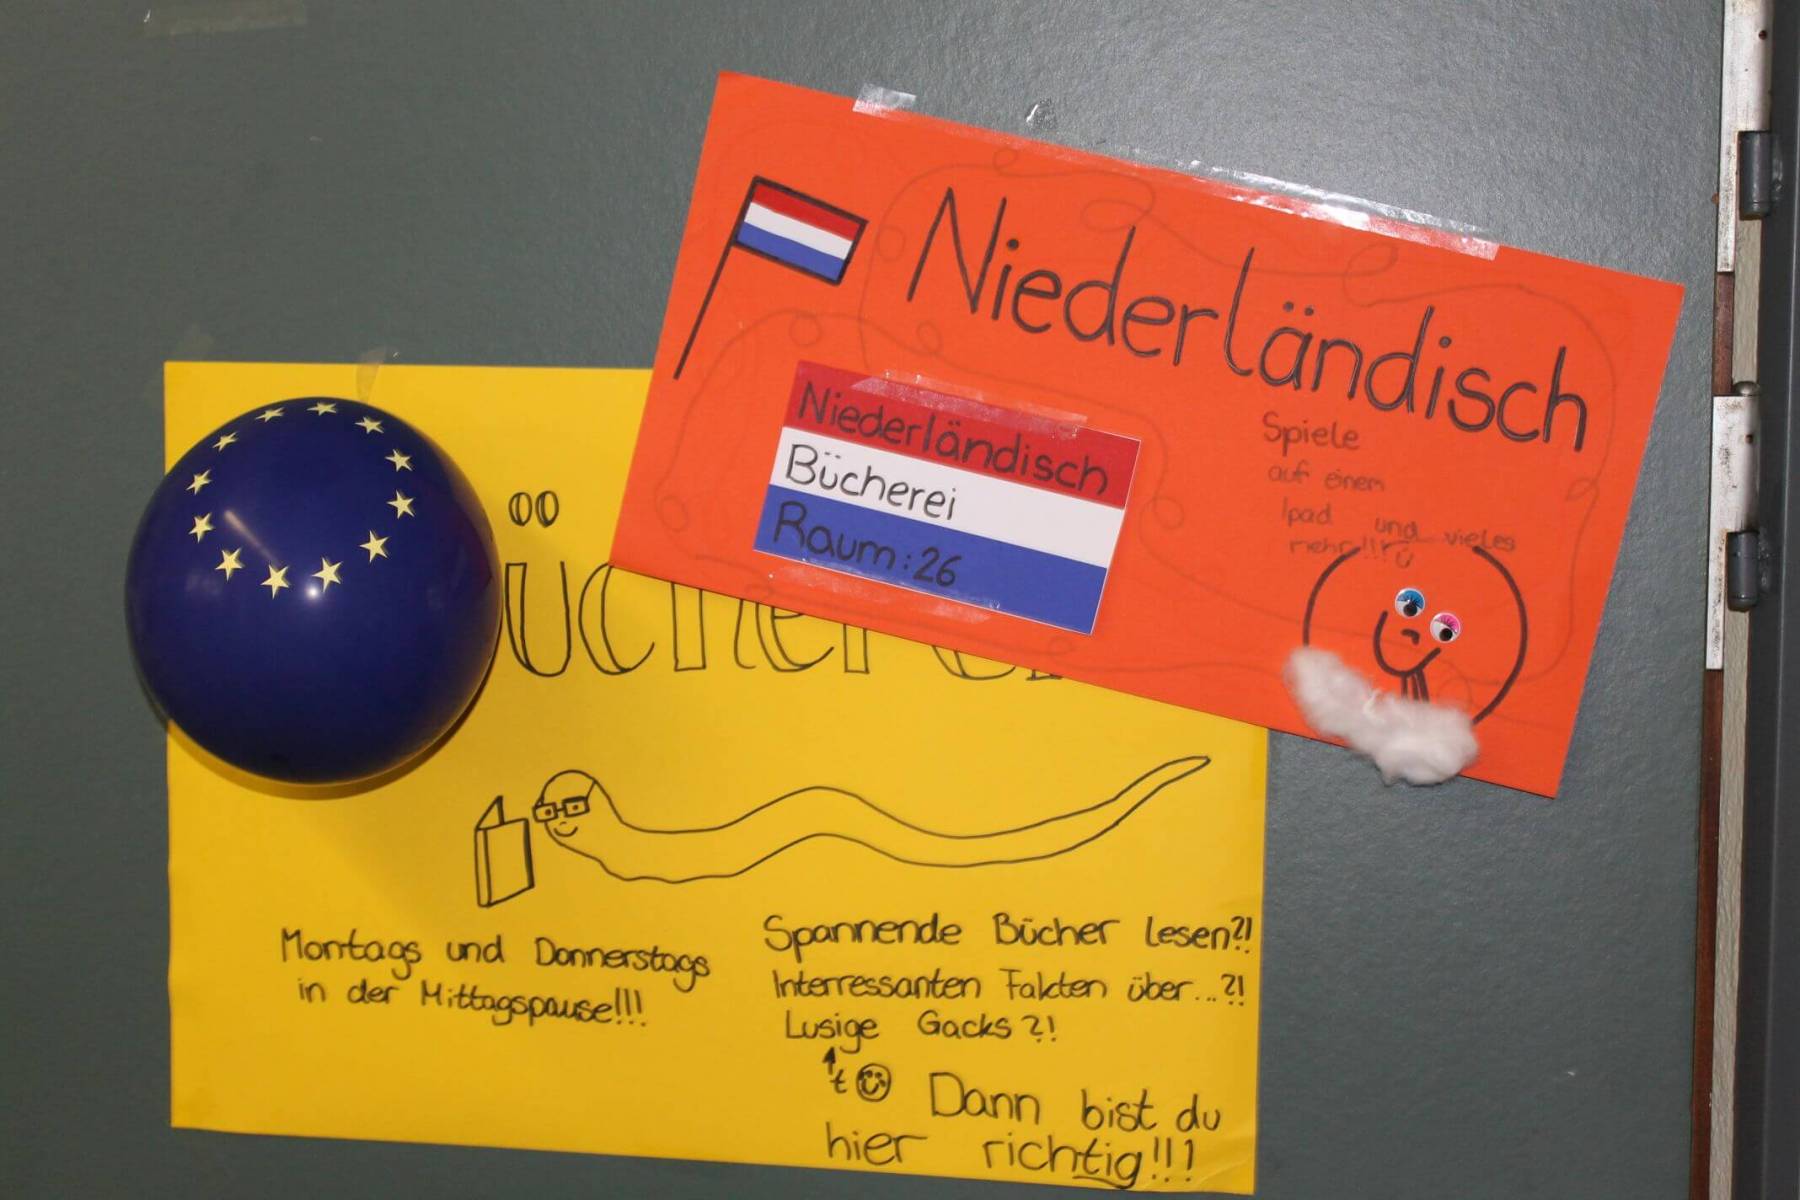 Niederländisch
Niederländisch
Bücherei
Raum: 26
Spiele
auf einem
Ipad und vieles
mehr!!!
ücherei
Montags und Donnerstags
in der Mittagspause!!!
Spannende Bücher lesen?!
Interressanten Fakten über...?!
Lusige Gacks?!
t
Dann bist du
hier richtig!!!